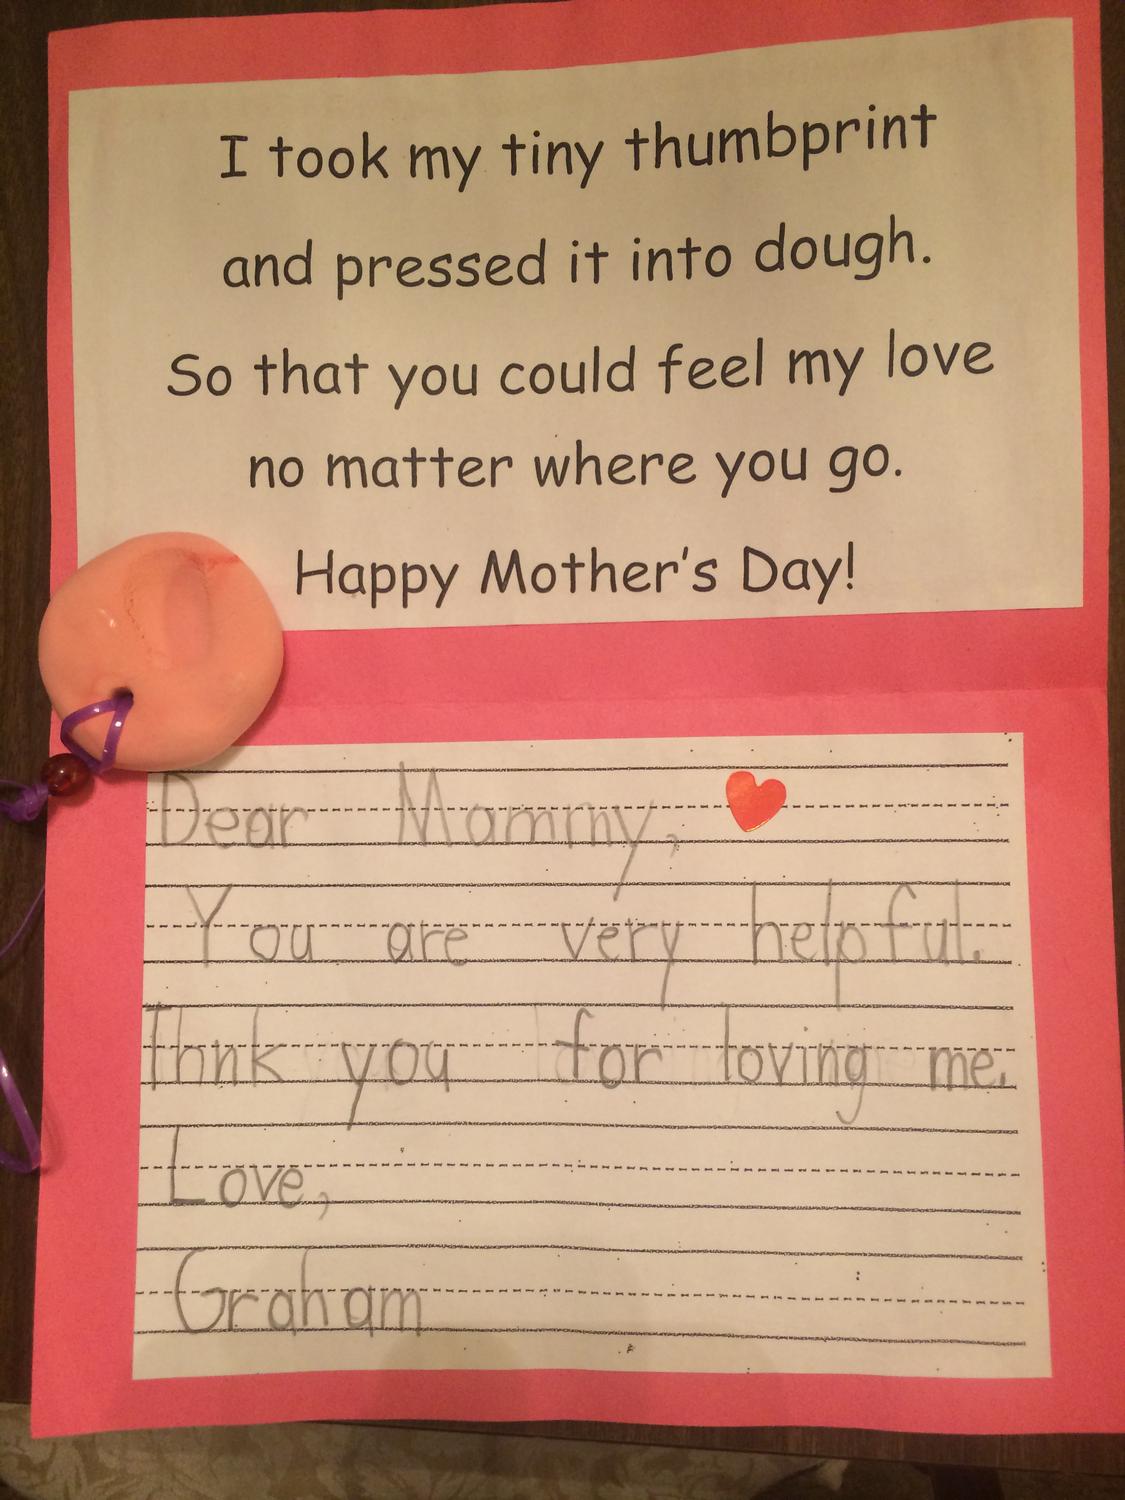 I took my tiny thumbprint
and pressed it into dough.
So that you could feel my love
no matter where you go.
Happy Mother's Day!
Dear Mommy,
You are very helpful.
Thnk you for loving me.
Love,
Graham